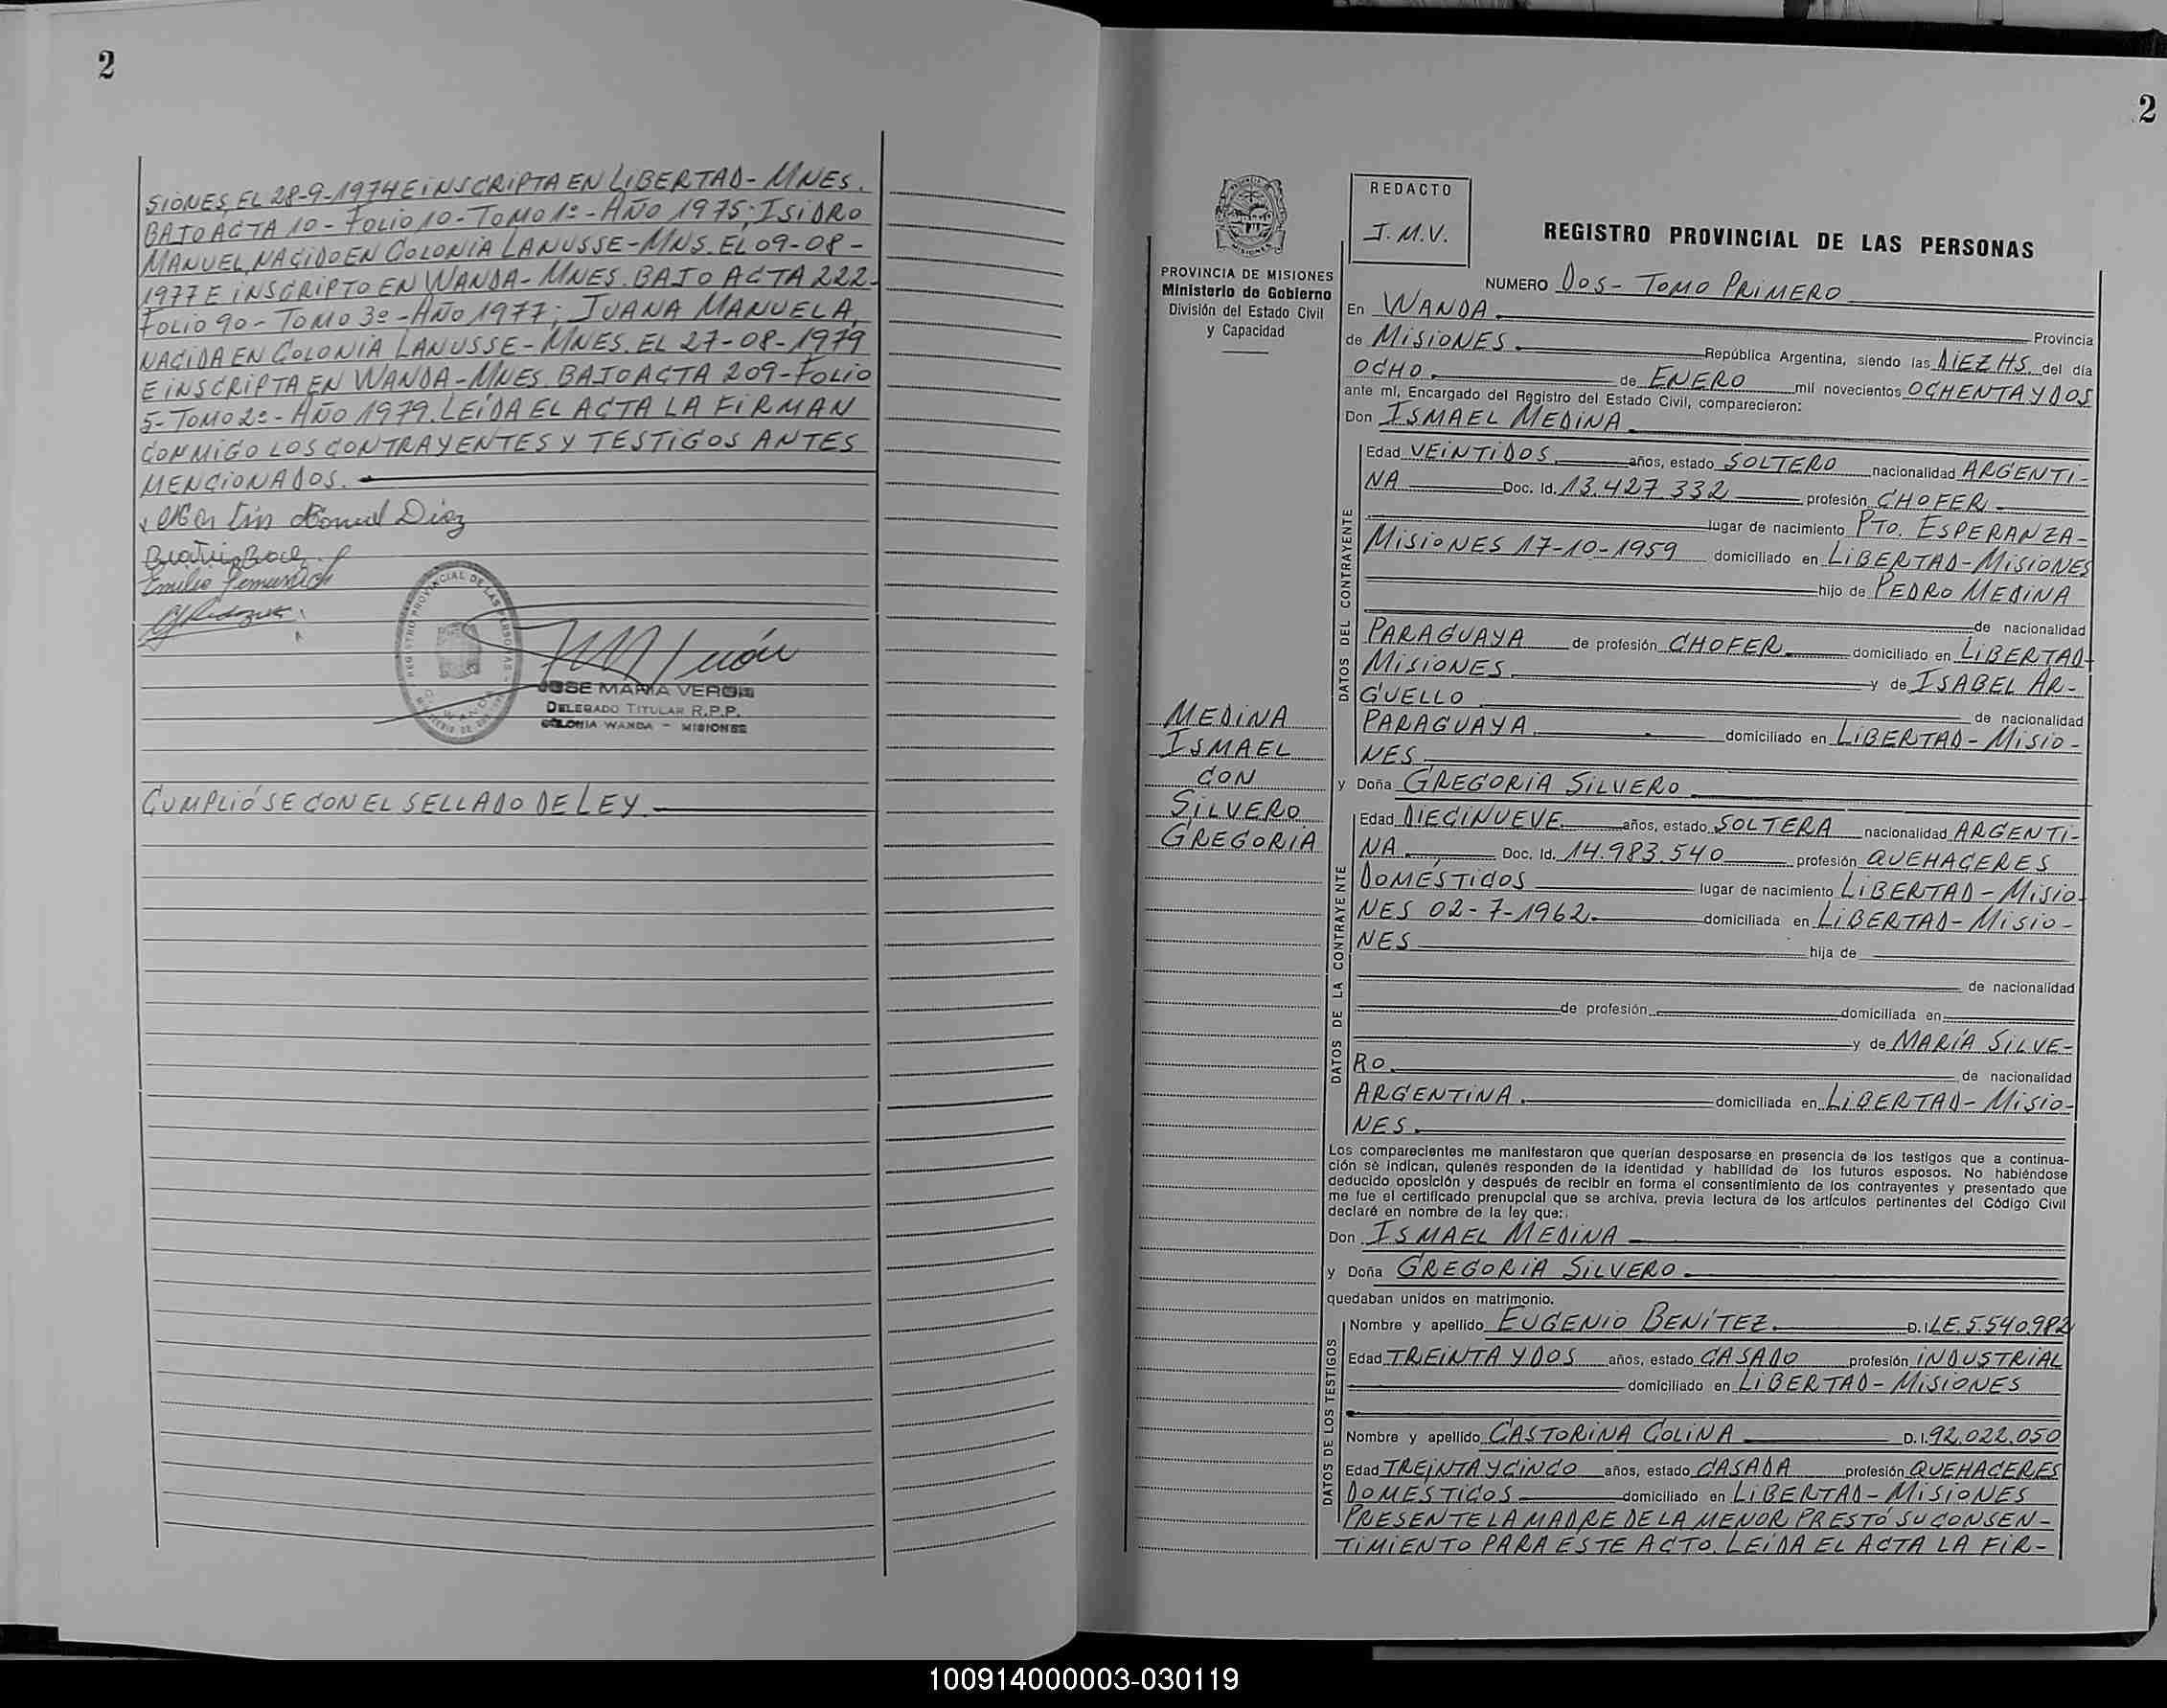 2
SIONES, EL 28-9-1974 E INSCRIPTA EN LIBERTAD - MNES.
BAJO ACTA 10 - FOLIO 10 - TOMO 1º - AÑO 1975; ISIDRO
MANUEL, NACIDO EN COLONIA LANUSSE - MNS. EL 09-08-
1977 E INSCRIPTO EN WANDA - MNES. BAJO ACTA 222-
FOLIO 90 - TOMO 3º - AÑO 1977; JUANA MANUELA,
NACIDA EN COLONIA LANUSSE - MNES. EL 27-08-1979
E INSCRIPTA EN WANDA - MNES. BAJO ACTA 209 - FOLIO
5 - TOMO 2º - AÑO 1979. LEÍDA EL ACTA LA FIRMAN
CONMIGO LOS CONTRAYENTES Y TESTIGOS ANTES
MENCIONADOS.
JOSE MARIA VERON
DELEGADO TITULAR R.P.P.
COLONIA WANDA - MISIONES
CUMPLIÓSE CON EL SELLADO DE LEY.
2
PROVINCIA DE MISIONES
Ministerio de Gobierno
División del Estado Civil
y Capacidad
MEDINA
ISMAEL
CON
SILVERO
GREGORIA
REDACTO
J.M.V.
REGISTRO PROVINCIAL DE LAS PERSONAS
NUMERO DOS - TOMO PRIMERO
En WANDA. Provincia
de MISIONES. República Argentina, siendo las DIEZ HS. del día
OCHO. de ENERO mil novecientos OCHENTA Y DOS
ante mí, Encargado del Registro del Estado Civil, comparecieron:
Don ISMAEL MEDINA.
DATOS DEL CONTRAYENTE
Edad VEINTIDOS años, estado SOLTERO nacionalidad ARGENTI-
NA Doc. Id. 13.427.332 profesión CHOFER
lugar de nacimiento PTO. ESPERANZA-
MISIONES 17-10-1959 domiciliado en LIBERTAD - MISIONES
hijo de PEDRO MEDINA
de nacionalidad
PARAGUAYA de profesión CHOFER. domiciliado en LIBERTAD-
MISIONES. y de ISABEL AR-
GUELLO de nacionalidad
PARAGUAYA. domiciliado en LIBERTAD - MISIO-
NES
y Doña GREGORIA SILVERO
DATOS DE LA CONTRAYENTE
Edad DIECINUEVE años, estado SOLTERA nacionalidad ARGENTI-
NA. Doc. Id. 14.983.540 profesión QUEHACERES
DOMÉSTICOS lugar de nacimiento LIBERTAD - MISIO-
NES 02-7-1962. domiciliada en LIBERTAD - MISIO-
NES hija de
de nacionalidad
de profesión domiciliada en
y de MARÍA SILVE-
RO. de nacionalidad
ARGENTINA. domiciliada en LIBERTAD - MISIO-
NES.
Los comparecientes me manifestaron que querían desposarse en presencia de los testigos que a continua-
ción se indican, quienes responden de la identidad y habilidad de los futuros esposos. No habiéndose
deducido oposición y después de recibir en forma el consentimiento de los contrayentes y presentado que
me fue el certificado prenupcial que se archiva, previa lectura de los artículos pertinentes del Código Civil
declaré en nombre de la ley que:
Don ISMAEL MEDINA
y Doña GREGORIA SILVERO.
quedaban unidos en matrimonio.
DATOS DE LOS TESTIGOS
Nombre y apellido EUGENIO BENÍTEZ. D.I. LE. 5.540.982
Edad TREINTA Y DOS años, estado CASADO profesión INDUSTRIAL
domiciliado en LIBERTAD - MISIONES
Nombre y apellido CASTORINA COLINA D.I. 92.022.050
Edad TREINTA Y CINCO años, estado CASADA profesión QUEHACERES
DOMÉSTICOS domiciliado en LIBERTAD - MISIONES
PRESENTE LA MADRE DE LA MENOR PRESTÓ SU CONSEN-
TIMIENTO PARA ESTE ACTO. LEÍDA EL ACTA LA FIR-
100914000003-030119